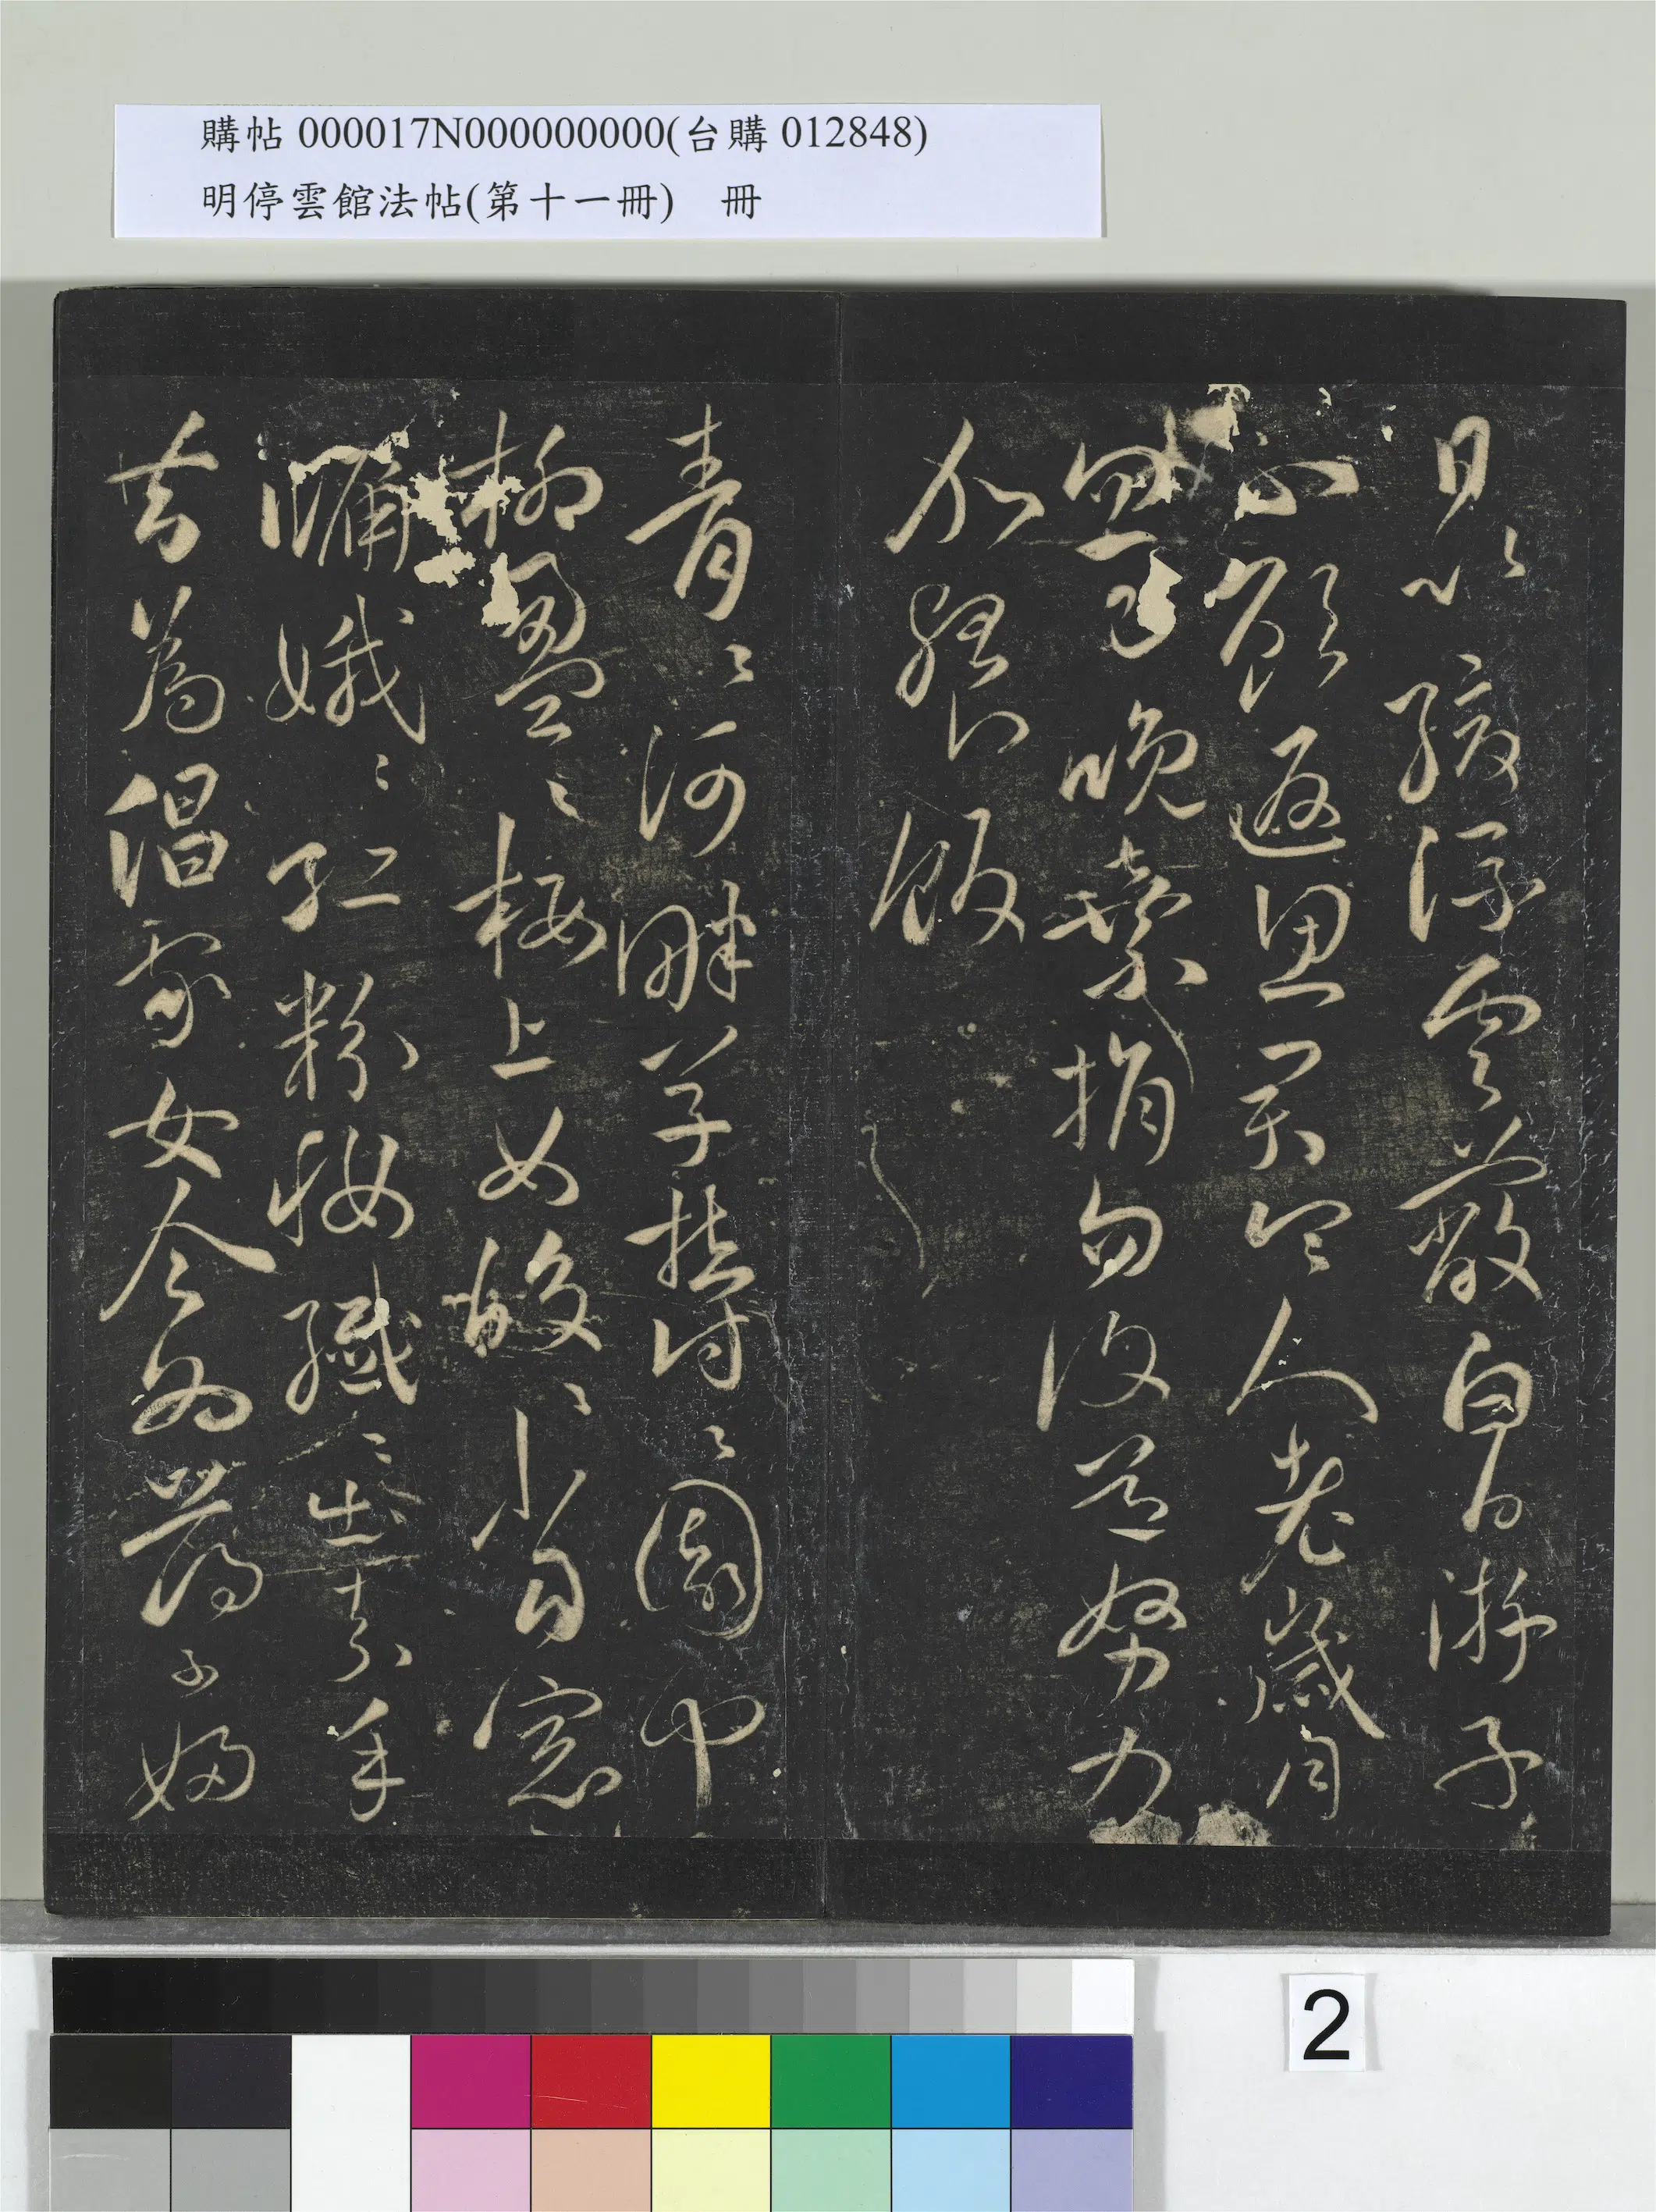 購帖 000017N000000000(台購 012848)
明停雲館法帖(第十一冊)　冊
日以緩浮雲蔽白日游子
不顧返思君令人老歲月
忽已晚棄捐勿復道努力
加餐飯
青〻河畔草鬱〻園中
柳盈〻樓上女皎〻當窓
牖娥〻紅粉妝纖〻出素手
昔為倡家女今為蕩子婦
2